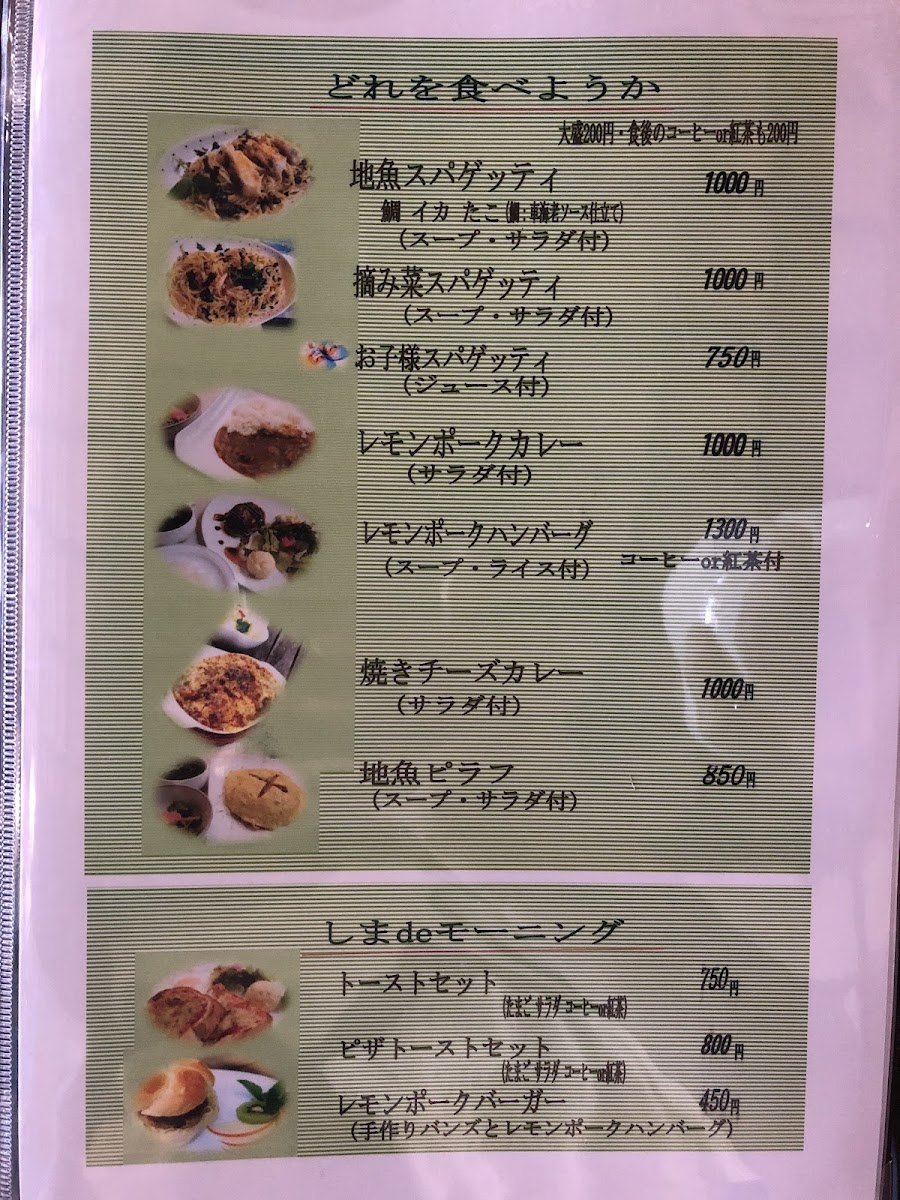 どれを食べようか
大盛200円・食後のコーヒーor紅茶も200円
地魚スパゲッティ 1000円
鯛 イカ たこ(鯛:車海老ソース仕立て)
(スープ・サラダ付)
摘み菜スパゲッティ 1000円
(スープ・サラダ付)
お子様スパゲッティ 750円
(ジュース付)
レモンポークカレー 1000円
(サラダ付)
レモンポークハンバーグ 1300円
(スープ・ライス付) コーヒーor紅茶付
焼きチーズカレー 1000円
(サラダ付)
地魚ピラフ 850円
(スープ・サラダ付)
しまdeモーニング
トーストセット 750円
(たまご サラダ コーヒーor紅茶)
ピザトーストセット 800円
(たまご サラダ コーヒーor紅茶)
レモンポークバーガー 450円
(手作りバンズとレモンポークハンバーグ)